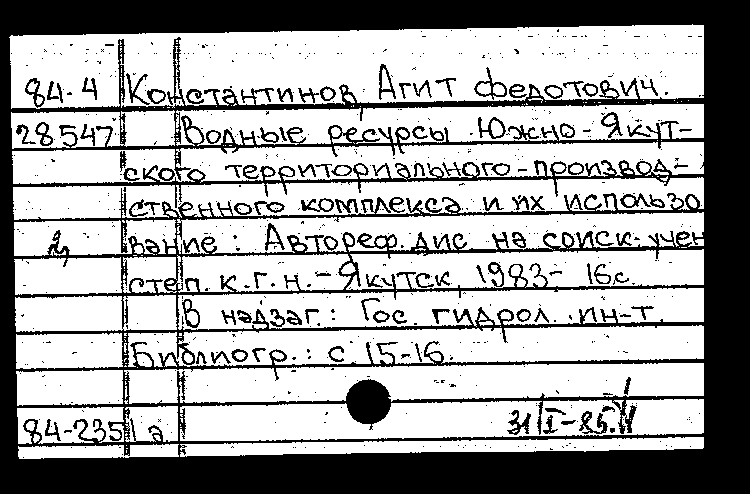 84.4 Константинов, Агит Федотович.
28547 Водные ресурсы Южно-Якут-
ского территориального-производ-
ственного комплекса и их использо
2, вание: Автореф. дис на соиск. учен
степ. к.г.н. - Якутск, 1983- 16с.
В надзаг.: Гос. гидрол. ин-т.
Библиогр.: с 15-16.
84-2351 а 31/I-85.